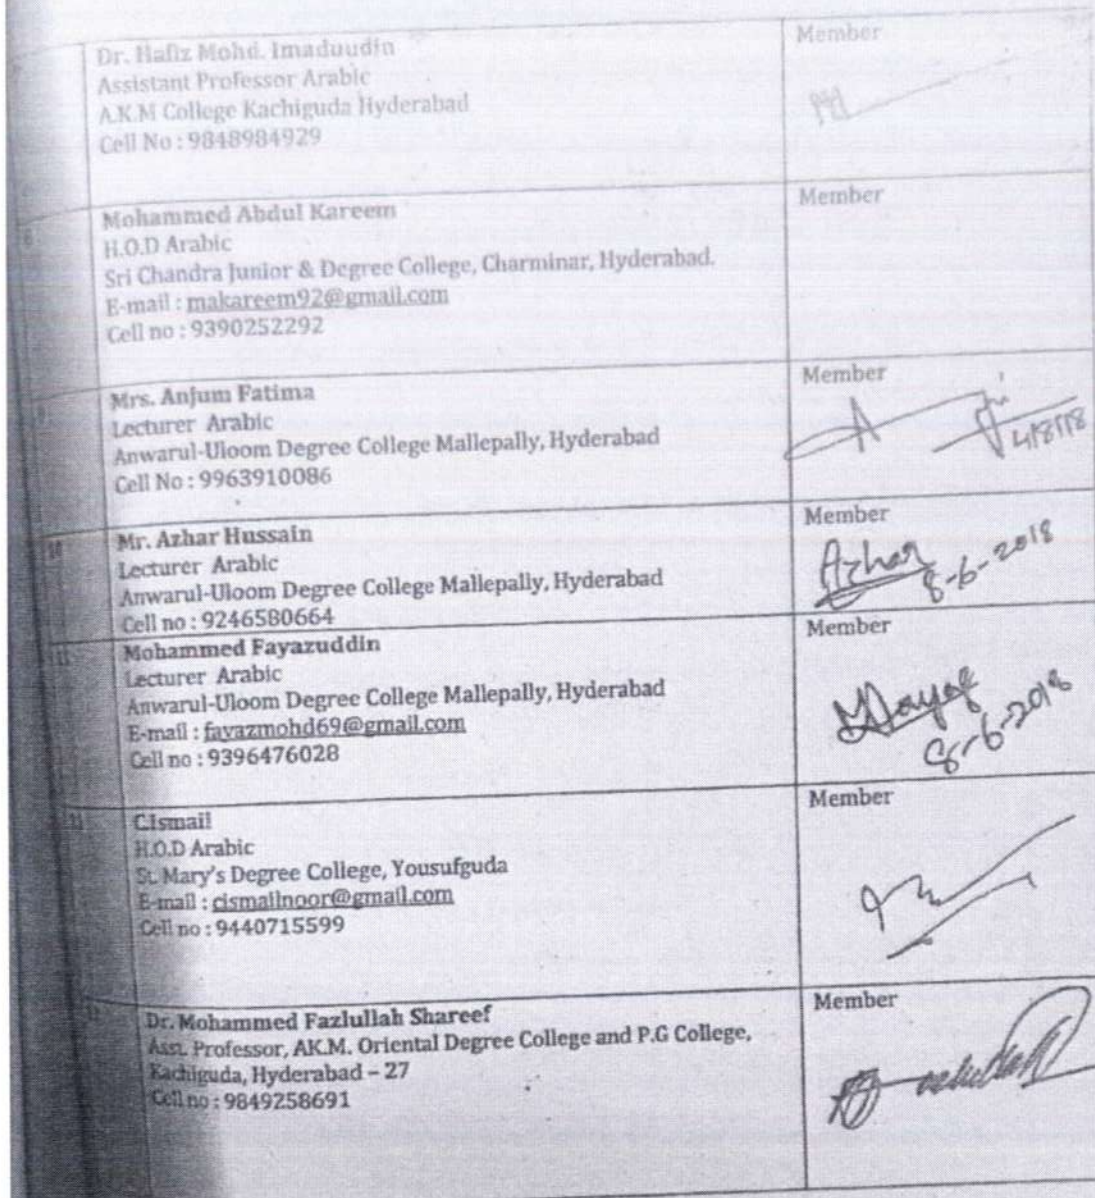 Dr. Hafiz Mohd. Imaduudin
Assistant Professor Arabic
A.K.M College Kachiguda Hyderabad
Cell No : 9848984929
Member
8
Mohammed Abdul Kareem
H.O.D Arabic
Sri Chandra Junior & Degree College, Charminar, Hyderabad.
E-mail : makareem92@gmail.com
Cell no : 9390252292
Member
9
Mrs. Anjum Fatima
Lecturer Arabic
Anwarul-Uloom Degree College Mallepally, Hyderabad
Cell No : 9963910086
Member
10
Mr. Azhar Hussain
Lecturer Arabic
Anwarul-Uloom Degree College Mallepally, Hyderabad
Cell no : 9246580664
Member
Azhar
8-6-2018
11
Mohammed Fayazuddin
Lecturer Arabic
Anwarul-Uloom Degree College Mallepally, Hyderabad
E-mail : fayazmohd69@gmail.com
Cell no : 9396476028
Member
8-6-2018
C.Ismail
H.O.D Arabic
St. Mary's Degree College, Yousufguda
E-mail : cismailnoor@gmail.com
Cell no : 9440715599
Member
Dr. Mohammed Fazlullah Shareef
Asst. Professor, AK.M. Oriental Degree College and P.G College,
Kachiguda, Hyderabad – 27
Cell no : 9849258691
Member